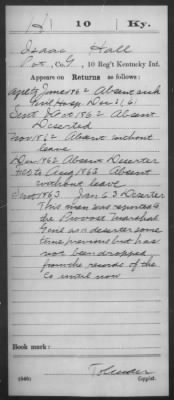 H | 10 | Ky.
Isaac Hall
Pvt, Co. G, 10 Reg't Kentucky Inf.
Appears on Returns as follows:
June 1862 Absent sick
Genl Hosp. Dec 31, 61
Sept 1862 Absent
Deserted
Nov 1862 Absent without
leave
Dec 1862 Absent Deserter
Feb to Aug 1863 Absent
without leave
Sept 1863 Jan 63 Deserter
This man was reported to
the Provost Marshal
Genl as a deserter some
time previous but has
not been dropped
from the records of the
Co until now
Book mark:
(546)
Copyist.